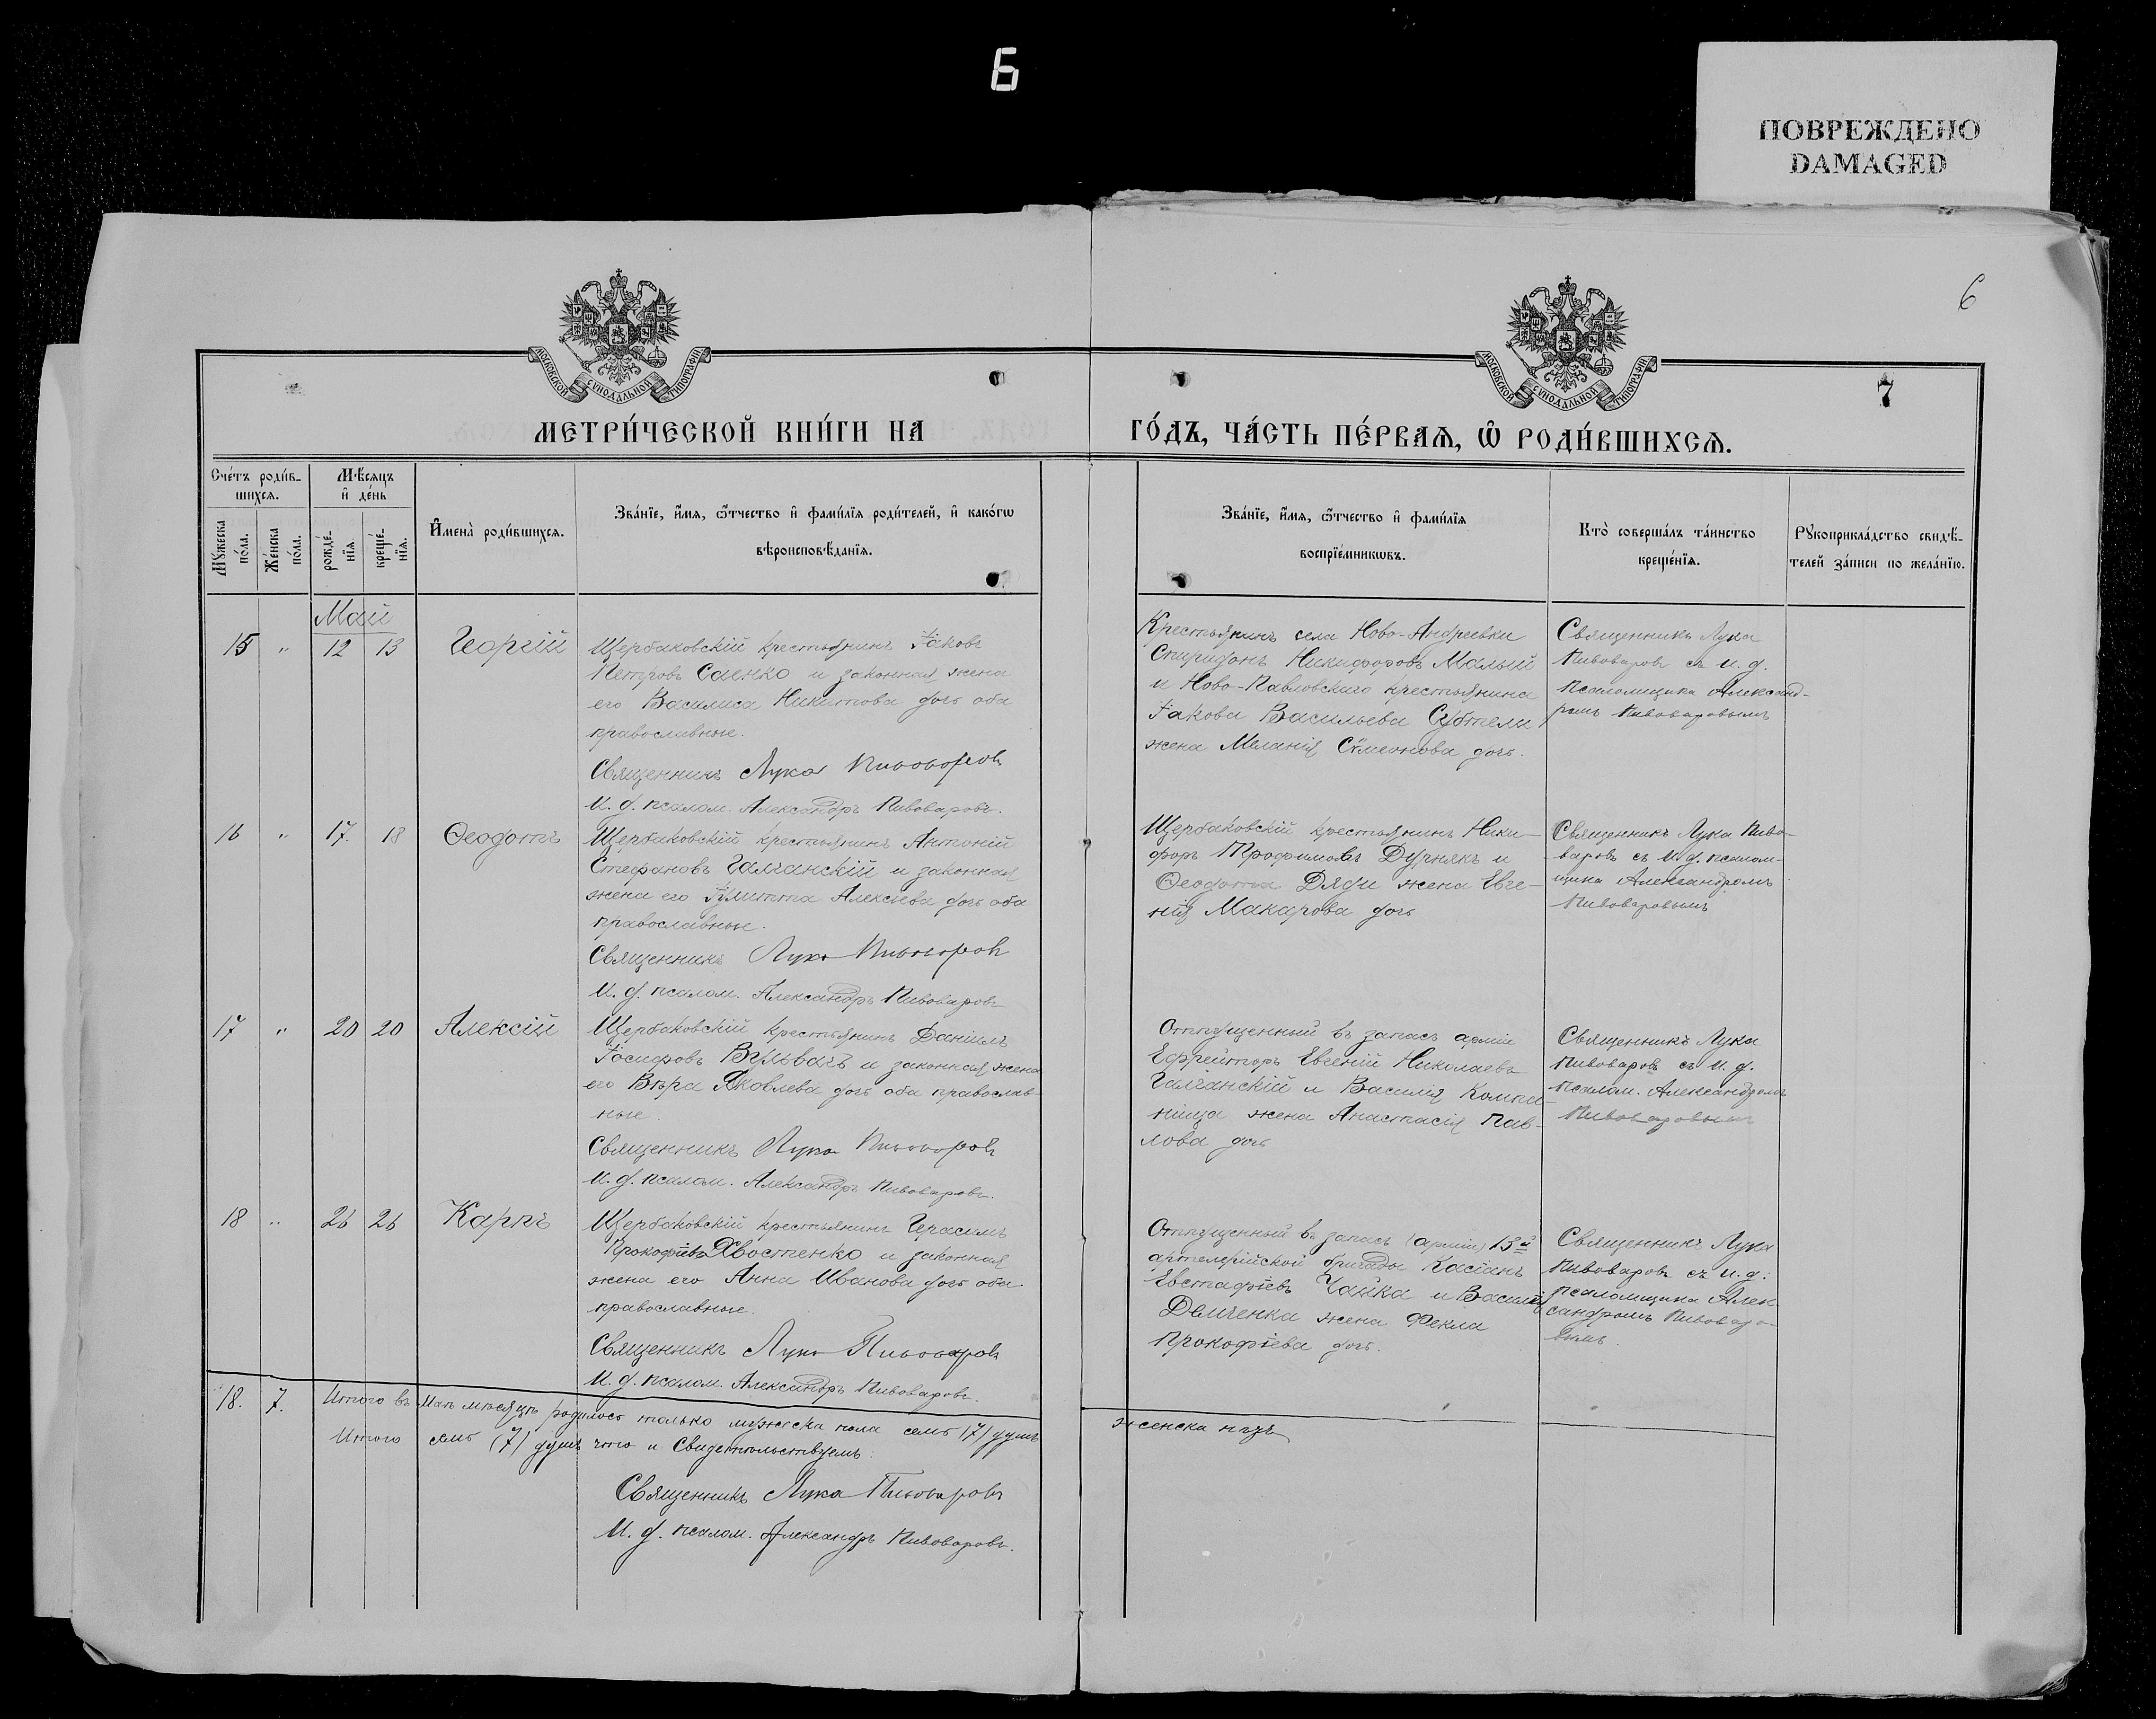 6
ПОВРЕЖДЕНО
DAMAGED
6
МОСКОВСКОЙ СУНОДАЛЬНОЙ ТИПОГРАФІИ
МОСКОВСКОЙ СУНОДАЛЬНОЙ ТИПОГРАФІИ
7
МЕТРИ́ЧЕСКОЙ КНИ́ГИ НА
ГО́ДЪ, ЧА́СТЬ ПЕ́РВАѦ, Ѡ҆ РОДИ́ВШИХСѦ.
Сче́тъ роди́в-
шихсѧ.
Мꙋ́жеска
по́ла.
Же́нска
по́ла.
Мѣ́сѧцъ
и҆ де́нь
рожде́-
нїѧ.
креще́-
нїѧ.
И҆мена̀ роди́вшихсѧ.
Зва́нїе, и҆́мѧ, ѻ҆́тчество и҆ фами́лїѧ роди́телей, и҆ како́гѡ
вѣроисповѣ́данїѧ.
Зва́нїе, и҆́мѧ, ѻ҆́тчество и҆ фами́лїѧ
воспрїе́мникѡвъ.
Кто̀ соверша́лъ та́инство
креще́нїѧ.
Рꙋкоприкла́дство свидѣ́-
телей за́писи по жела́нїю.
Май
15 " 12 13 Георгій
Щербаковскій крестьянинъ Іаковъ
Петровъ Саенко и законная жена
его Василиса Никитова дочь оба
православные.
Священникъ Лука Пивоваровъ
И. д. псалом. Александръ Пивоваровъ.
Крестьянинъ села Ново-Андреевки
Спиридонъ Никифоровъ Малый
и Ново-Павловскаго крестьянина
Іакова Васильева Субтели
жена Меланія Сѵмеонова дочь.
Священникъ Лука
Пивоваровъ съ и. д.
псаломщика Александ-
ромъ Пивоваровымъ
16 " 17. 18 Ѳеодотъ
Щербаковскій крестьянинъ Антоній
Стефановъ Галчанскій и законная
жена его Іулитта Алексѣева дочь оба
православные.
Священникъ Лука Пивоваровъ
И. д. псалом. Александръ Пивоваровъ
Щербаковскій крестьянинъ Ники-
форъ Трофимовъ Дурнякъ и
Ѳеодота Дяди жена Евге-
нія Макарова дочь
Священникъ Лука Пиво-
варовъ съ И. д. псалом-
щика Александромъ
Пивоваровымъ
17 " 20 20 Алексій
Щербаковскій крестьянинъ Даніилъ
Іосифовъ Вульвачъ и законная жена
его Вѣра Яковлева дочь оба православ-
ные.
Священникъ Лука Пивоваровъ
И. д. псалом. Александръ Пивоваровъ.
Отпущенный въ запасъ арміи
Ефрейторъ Евгеній Николаевъ
Галчанскій и Василія Компа-
нійца жена Анастасія Пав-
лова дочь
Священникъ Лука
Пивоваровъ съ И. д.
псалом. Александромъ
Пивоваровымъ
18 " 26 26 Карпъ
Щербаковскій крестьянинъ Герасимъ
Прокофіевъ Хвостенко и законная
жена его Анна Иванова дочь оба
православные.
Священникъ Лука Пивоваровъ
И. д. псалом. Александръ Пивоваровъ.
Отпущенный въ запасъ (арміи) 13й
артелерійской бригады Касіанъ
Евстафіевъ Чайка и Василія
Демченка жена Фекла
Прокофіева дочь.
Священникъ Лука
Пивоваровъ съ и. д.
псаломщика Алек-
сандромъ Пивоваро-
вымъ
18. 7. Итого въ Маѣ мѣсяцѣ родилось только мужеска пола семь (7) душъ женска нѣтъ
Итого семь (7) душъ что и Свидетельствуемъ.
Священникъ Лука Пивоваровъ
И. д. псалом. Александръ Пивоваровъ.